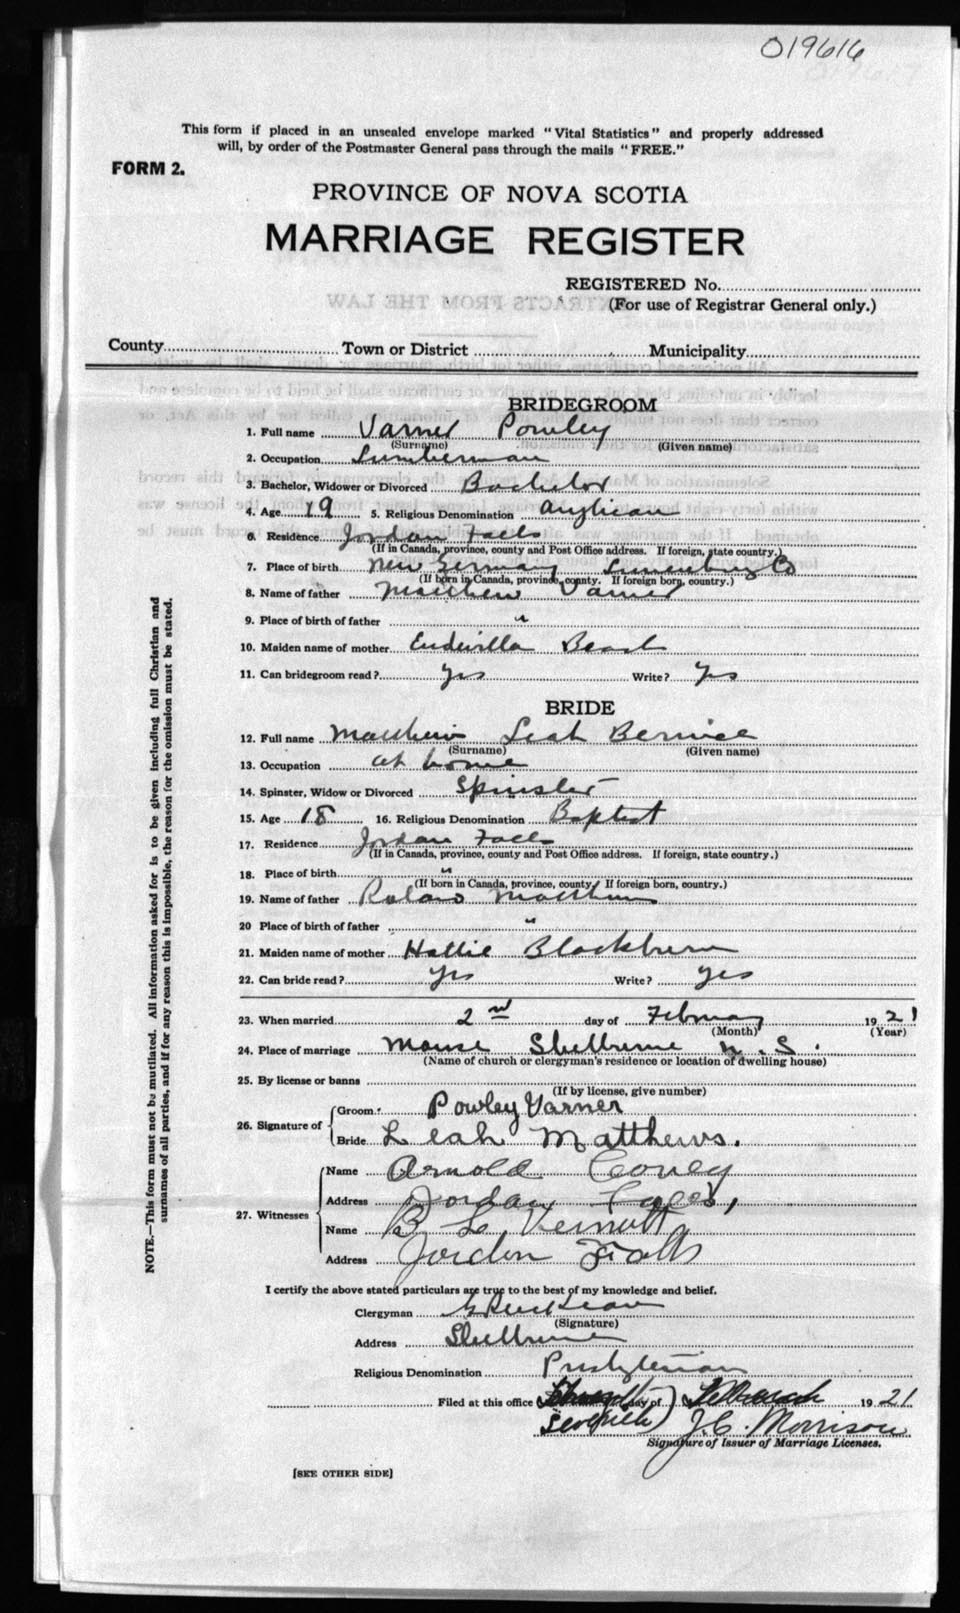 019616
This form if placed in an unsealed envelope marked "Vital Statistics" and properly addressed
will, by order of the Postmaster General pass through the mails "FREE."
FORM 2.
PROVINCE OF NOVA SCOTIA
MARRIAGE REGISTER
REGISTERED No.
(For use of Registrar General only.)
County Town or District Municipality
BRIDEGROOM
1. Full name Varner Powley
(Surname) (Given name)
2. Occupation Lumberman
3. Bachelor, Widower or Divorced Bachelor
4. Age 19 5. Religious Denomination Anglican
6. Residence Jordan Falls
(If in Canada, province, county and Post Office address. If foreign, state country.)
7. Place of birth New Germany Lunenburg Co
(If born in Canada, province, county. If foreign born, country.)
8. Name of father Matthew Varner
9. Place of birth of father "
10. Maiden name of mother
11. Can bridegroom read? Yes Write? Yes
BRIDE
12. Full name Matthews Leah Bernice
(Surname) (Given name)
13. Occupation at home
14. Spinster, Widow or Divorced Spinster
15. Age 18 16. Religious Denomination Baptist
17. Residence Jordan Falls
(If in Canada, province, county and Post Office address. If foreign, state country.)
18. Place of birth "
(If born in Canada, province, county. If foreign born, country.)
19. Name of father Matthews
20 Place of birth of father "
21. Maiden name of mother Hattie Blackburn
22. Can bride read? Yes Write? Yes
23. When married 2nd day of February 1921
(Month) (Year)
24. Place of marriage Manse Shelburne N.S.
(Name of church or clergyman's residence or location of dwelling house)
25. By license or banns
(If by license, give number)
26. Signature of Groom Powley Varner
Bride Leah Matthews.
27. Witnesses Name Arnold
Address Jordan Falls,
Name B L
Address Jordon Falls
I certify the above stated particulars are true to the best of my knowledge and belief.
Clergyman
(Signature)
Address Shelburne
Religious Denomination Presbyterian
Filed at this office day of 1921
J.C. Morrison
Signature of Issuer of Marriage Licenses.
[SEE OTHER SIDE]
NOTE.—This form must not be mutilated. All information asked for is to be given including full Christian and
surnames of all parties, and if for any reason this is impossible, the reason for the omission must be stated.